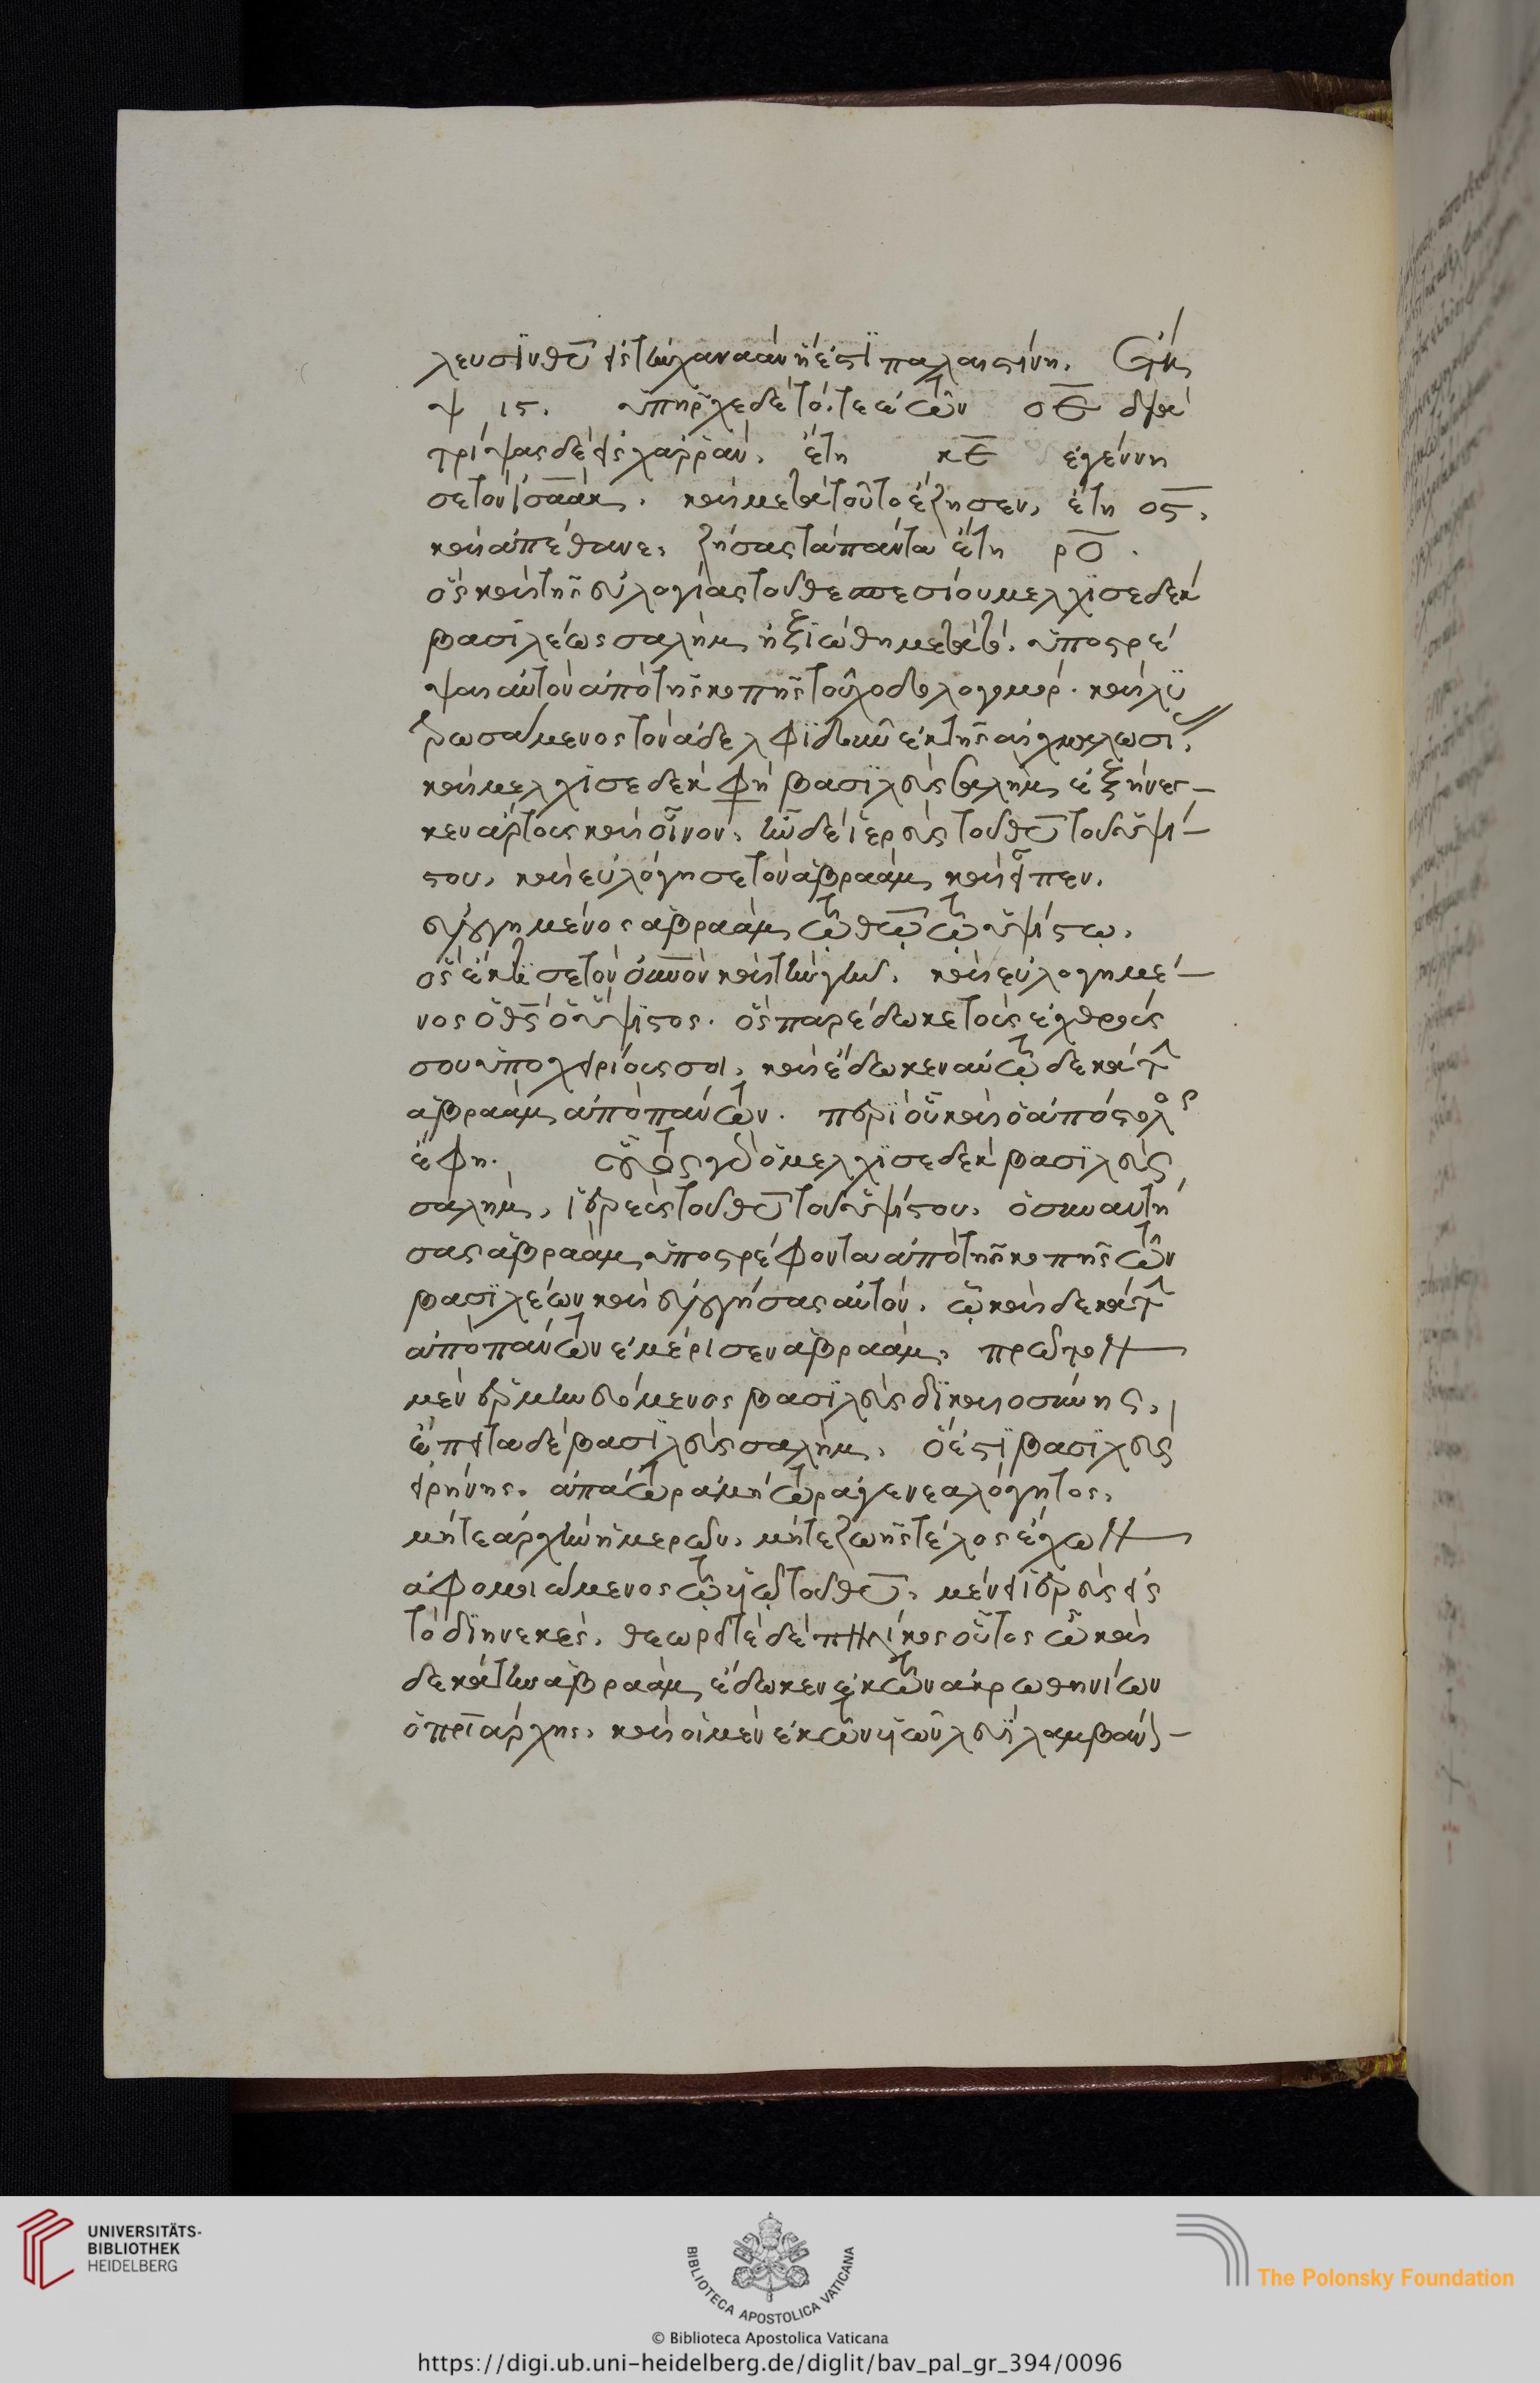 λευσιν θ̅υ̅ εἰς τὴν χαναὰν ἥ ἐστι παλαιστίνη.
ὑπῆρχε δὲ τότε ἐτῶν ο̅ε̅ δια
τρίψας δὲ εἰς χαρράν, ἔτη κ̅ε̅ ἐγέννη
σε τὸν ἰσαάκ. καὶ μετὰ τοῦτο ἔζησεν, ἔτη ο̅ς̅,
καὶ ἀπέθανε, ζήσας τὰ πάντα ἔτη ρ̅ο̅.
ὃς καὶ τῆς εὐλογίας τοῦ θεσπεσίου μελχισεδὲκ
βασιλέως σαλὴμ ἠξιώθη μετὰ τὸ ὑποστρέ
ψαι αὐτὸν ἀπὸ τῆς κοπῆς τοῦ χοδολογομόρ. καὶ λυ
τρωσάμενος τὸν ἀδελφιδοῦν ἐκ τῆς αἰχμαλωσί,
καὶ μελχισεδὲκ φη βασιλεὺς σαλὴμ ἐξήνεγ
κεν ἄρτους καὶ οἶνον, ἦν δὲ ἱερεὺς τοῦ θ̅υ̅ τοῦ ὑψί
στου, καὶ εὐλόγησε τὸν ἀβραὰμ καὶ εἶπεν.
εὐλογημένος ἀβραὰμ τῷ θ̅ω̅ τῷ ὑψίστῳ,
ὃς ἔκτισε τὸν ο̅υ̅ν̅ο̅ν καὶ τὴν γῆν, καὶ εὐλογημέ
νος ὁ θ̅ς̅ ὁ ὕψιστος. ὃς παρέδωκε τοὺς ἐχθρούς
σου ὑποχειρίους σοι, καὶ ἔδωκεν αὐτῷ δεκάτην
ἀβραὰμ ἀπὸ πάντων. περὶ οὗ καὶ ὁ ἀπόστολος
ἔφη. οὗτος γὰρ ὁ μελχισεδὲκ βασιλεὺς
σαλὴμ, ἱερεὺς τοῦ θ̅υ̅ τοῦ ὑψίστου, ὁ συναντή
σας ἀβραὰμ ὑποστρέφοντα ἀπὸ τῆς κοπῆς τῶν
βασιλέων καὶ εὐλογήσας αὐτόν, ᾧ καὶ δεκάτην
ἀπὸ πάντων ἐμέρισεν ἀβραὰμ, πρῶτον
μὲν ἑρμηνευόμενος βασιλεὺς δικαιοσύνης,
ἔπειτα δὲ βασιλεὺς σαλὴμ, ὅ ἐστι βασιλεὺς
εἰρήνης. ἀπάτωρ ἀμήτωρ ἀγενεαλόγητος,
μήτε ἀρχὴν ἡμερῶν, μήτε ζωῆς τέλος ἔχων
ἀφομοιώμενος τῷ υἱῷ τοῦ θ̅υ̅, μένει ἱερεὺς εἰς
τὸ διηνεκές, θεωρεῖτε δὲ πηλίκος οὗτος ᾧ καὶ
δεκάτην ἀβραὰμ ἔδωκεν ἐκ τῶν ἀκρωθηνίων
ὁ π̅ρ̅ιάρχης, καὶ οἱ μὲν ἐκ τῶν υἱῶν λευῒ λαμβάν
UNIVERSITÄTS-
BIBLIOTHEK
HEIDELBERG
BIBLIOTECA APOSTOLICA VATICANA
The Polonsky Foundation
© Biblioteca Apostolica Vaticana
https://digi.ub.uni-heidelberg.de/diglit/bav_pal_gr_394/0096